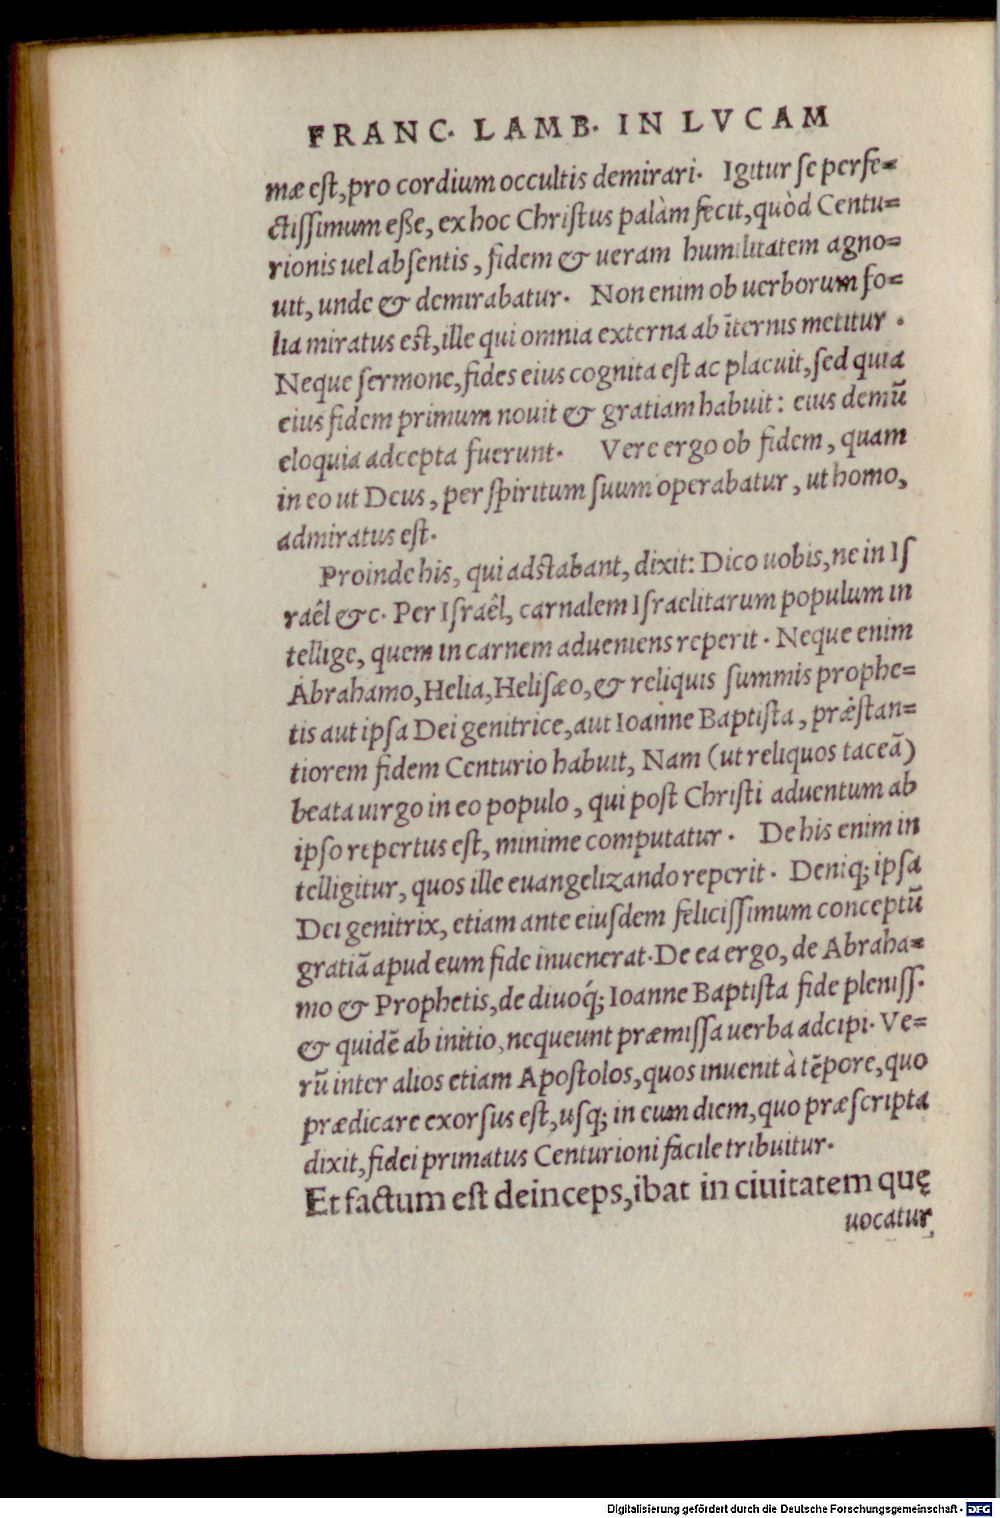 FRANC. LAMB. IN LVCAM
mæ est, pro cordium occultis demirari. Igitur se perfe=
ctissimum eße, ex hoc Christus palàm fecit, quòd Centu=
rionis uel absentis, fidem & ueram humilitatem agno=
uit, unde & demirabatur. Non enim ob uerborum fo=
lia miratus est, ille qui omnia externa ab īternis metitur.
Neque sermone, fides eius cognita est ac placuit, sed quia
eius fidem primum nouit & gratiam habuit: eius demū
eloquia adcepta fuerunt. Vere ergo ob fidem, quam
in eo ut Deus, per spiritum suum operabatur, ut homo,
admiratus est.
Proinde his, qui adstabant, dixit: Dico uobis, ne in Is
raêl &c. Per Israêl, carnalem Israelitarum populum in
tellige, quem in carnem adueniens reperit. Neque enim
Abrahamo, Helia, Helisæo, & reliquis summis prophe=
tis aut ipsa Dei genitrice, aut Ioanne Baptista, præstan=
tiorem fidem Centurio habuit, Nam (ut reliquos taceā)
beata uirgo in eo populo, qui post Christi aduentum ab
ipso repertus est, minime computatur. De his enim in
telligitur, quos ille euangelizando reperit. Deniq; ipsa
Dei genitrix, etiam ante eiusdem felicissimum conceptū
gratiā apud eum fide inuenerat. De ea ergo, de Abraha=
mo & Prophetis, de diuoq́; Ioanne Baptista fide pleniss.
& quidē ab initio, nequeunt præmissa uerba adcipi. Ve=
rū inter alios etiam Apostolos, quos inuenit à tēpore, quo
prædicare exorsus est, usq; in eum diem, quo præscripta
dixit, fidei primatus Centurioni facile tribuitur.
Et factum est deinceps, ibat in ciuitatem quę
uocatur,
Digitalisierung gefördert durch die Deutsche Forschungsgemeinschaft - DFG